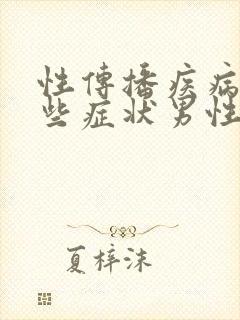 性傳播疾病
些症状男性
夏梓沫